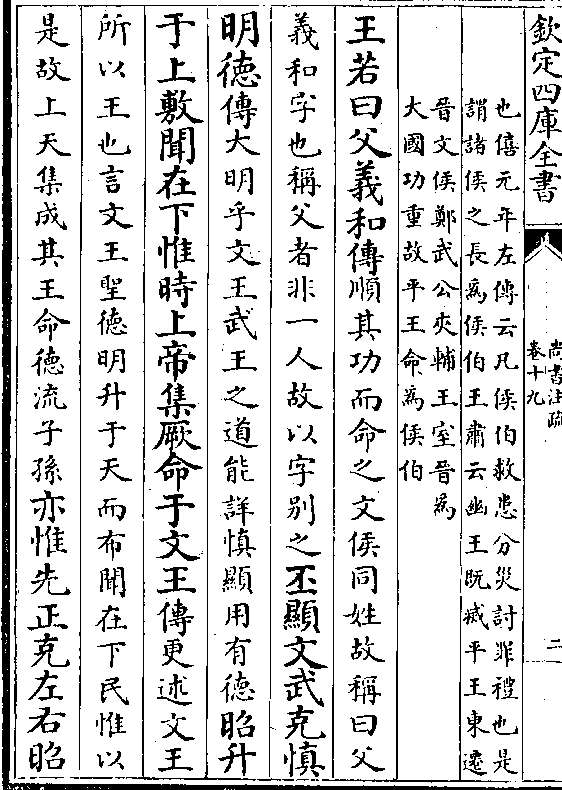 欽定四庫全書
尚書注疏
卷十九
二
也僖元年左傳云凡侯伯救患分災討罪禮也是
謂諸侯之長為侯伯王肅云幽王既滅平王東遷
晉文侯鄭武公夾輔王室晉為
大國功重故平王命為侯伯
王若曰父義和傳順其功而命之文侯同姓故稱曰父
義和字也稱父者非一人故以字別之丕顯文武克慎
明德傳大明乎文王武王之道能詳慎顯用有德昭升
于上敷聞在下惟時上帝集厥命于文王傳更述文王
所以王也言文王聖德明升于天而布聞在下民惟以
是故上天集成其王命德流子孫亦惟先正克左右昭